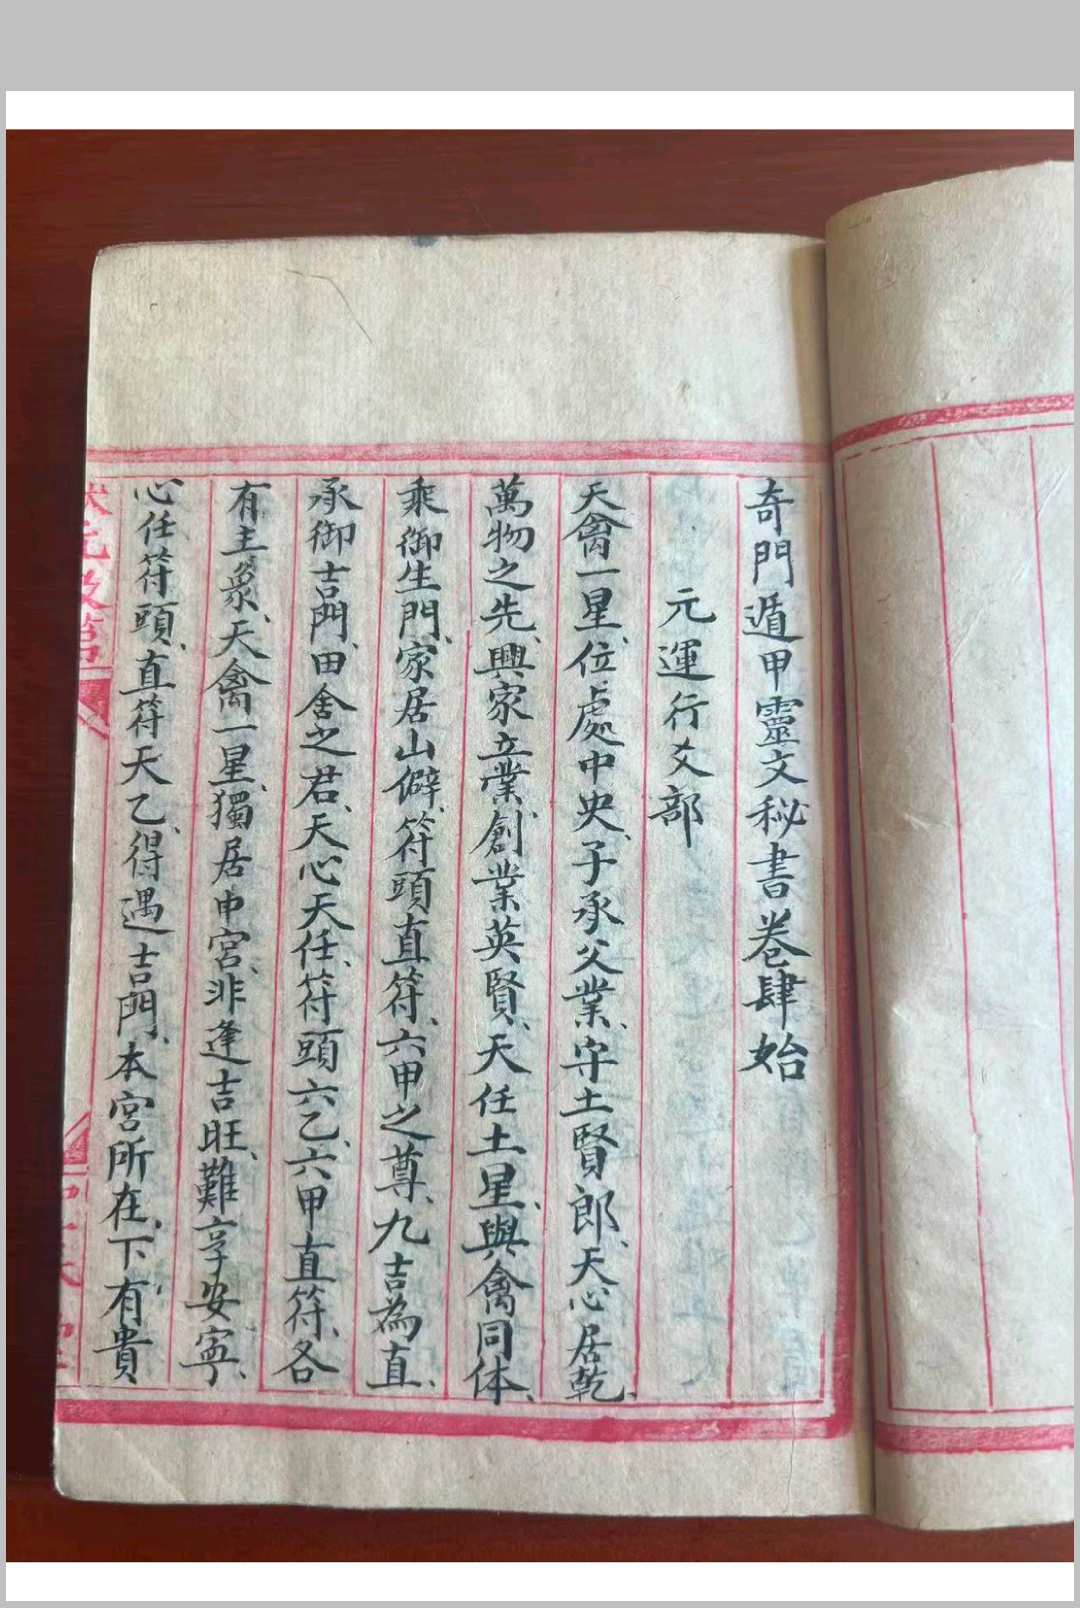 奇門遁甲靈文秘書卷肆始
元運行爻部
天禽一星、位處中央、子承父業、守土賢郎、天心居乾、
萬物之先、興家立業、創業英賢、天任土星、與禽同体、
乘御生門、家居山僻、符頭直符、六甲之尊、九吉為直、
承御吉門、田舍之君、天心天任、符頭六乙、六甲直符、各
有主象、天禽一星、獨居中宮、非逢吉旺、難享安寧、
心任符頭、直符天乙、得遇吉門、本宮所在、下有貴